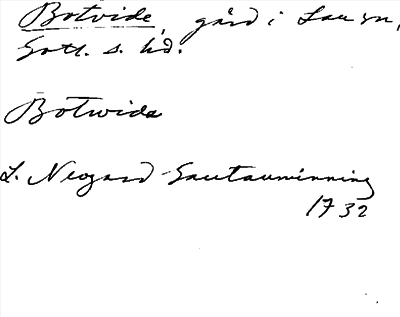 Botvide, gård i Lau sn,
Gotl. s. hd.
Botwida
L. Neogard Gautauminning
1732